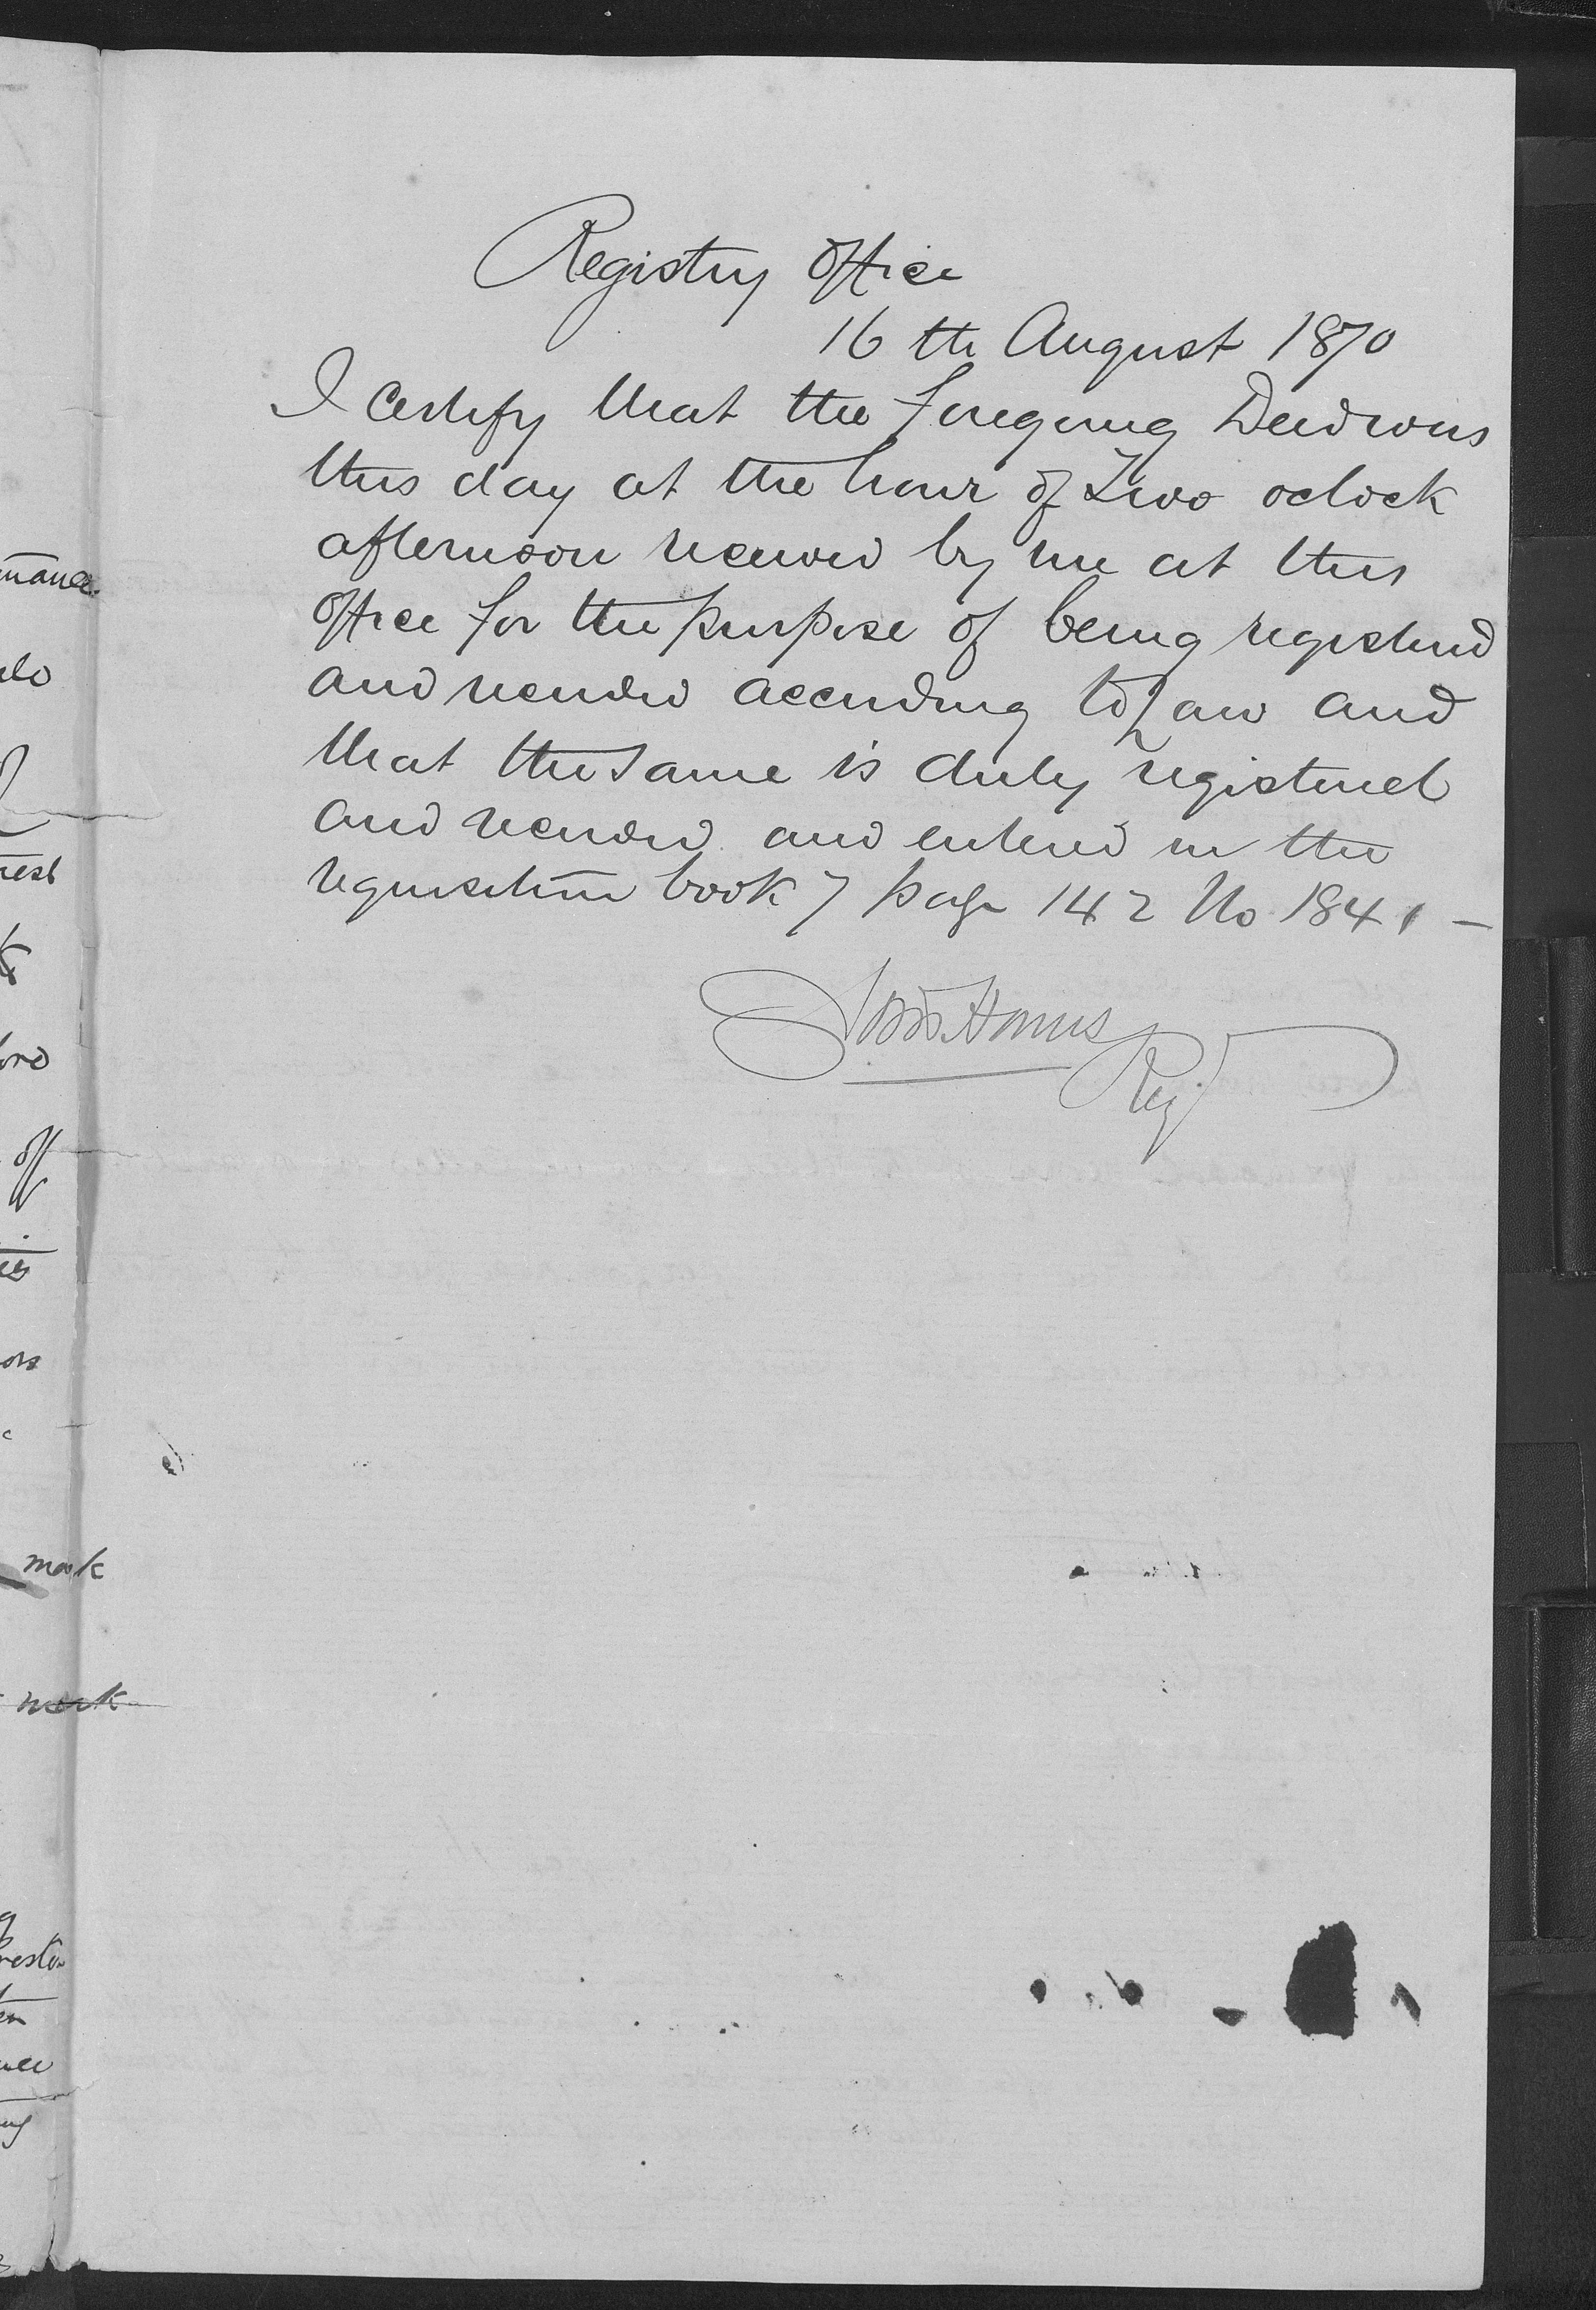 Registry Office
16th August 1870
I Certify that the foregoing Deed was
this day at the hour of Two oclock
afternoon received by me at this
Office for the purpose of being registered
and recorded according to Law and
that the same is duly registered
and recorded and entered in the
requisition book 7 page 142 No 1841 -
Regr
mance.
mark
mark